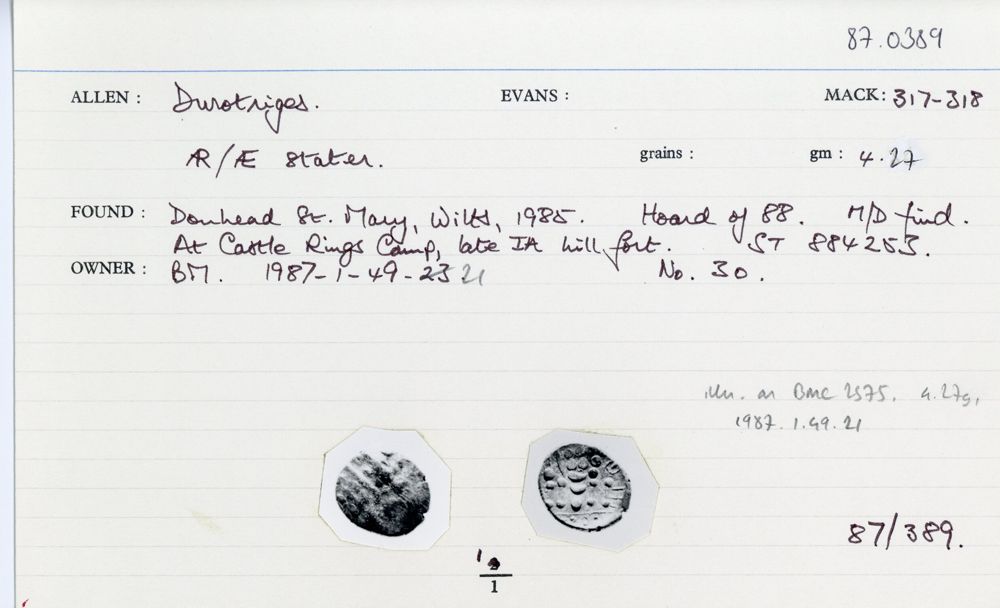 87.0389
ALLEN : Durotriges. EVANS : MACK: 317-318
ÆR/Æ stater. grains : gm : 4.27
FOUND : Donhead St. Mary, Wilts, 1985. Hoard of 88. M/D find.
At Castle Rings Camp, late IA hill fort. ST 884253.
OWNER : BM. 1987-1-49-23 21 No. 30.
illn. on BMC 2575. 4.27g,
1987.1.49.21
87/389.
1
1